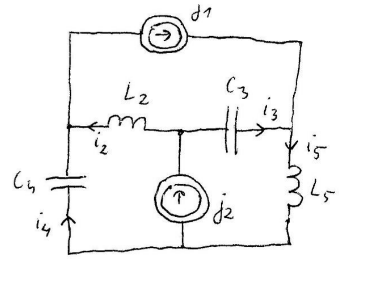 j1
L2
C3
i3
i2
i5
C4
L5
j2
i4